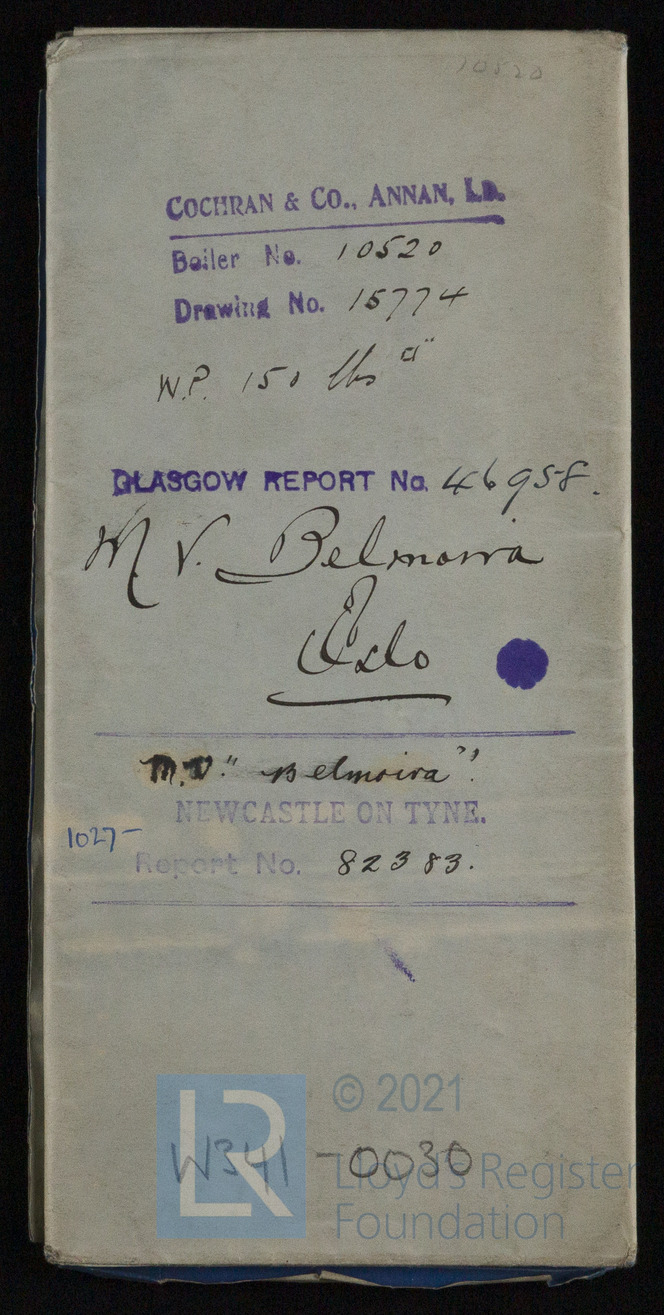 10520
COCHRAN & CO., ANNAN, LD.
Boiler No. 10520
Drawing No. 15774
W.P. 150 lbs □"
GLASGOW REPORT No. 46958.
M.V. Belmoira
Oslo
M.V. "Belmoira".
NEWCASTLE ON TYNE.
1027-
Report No. 82383.
© 2021
LR
W341-0030
Lloyd's Register
Foundation